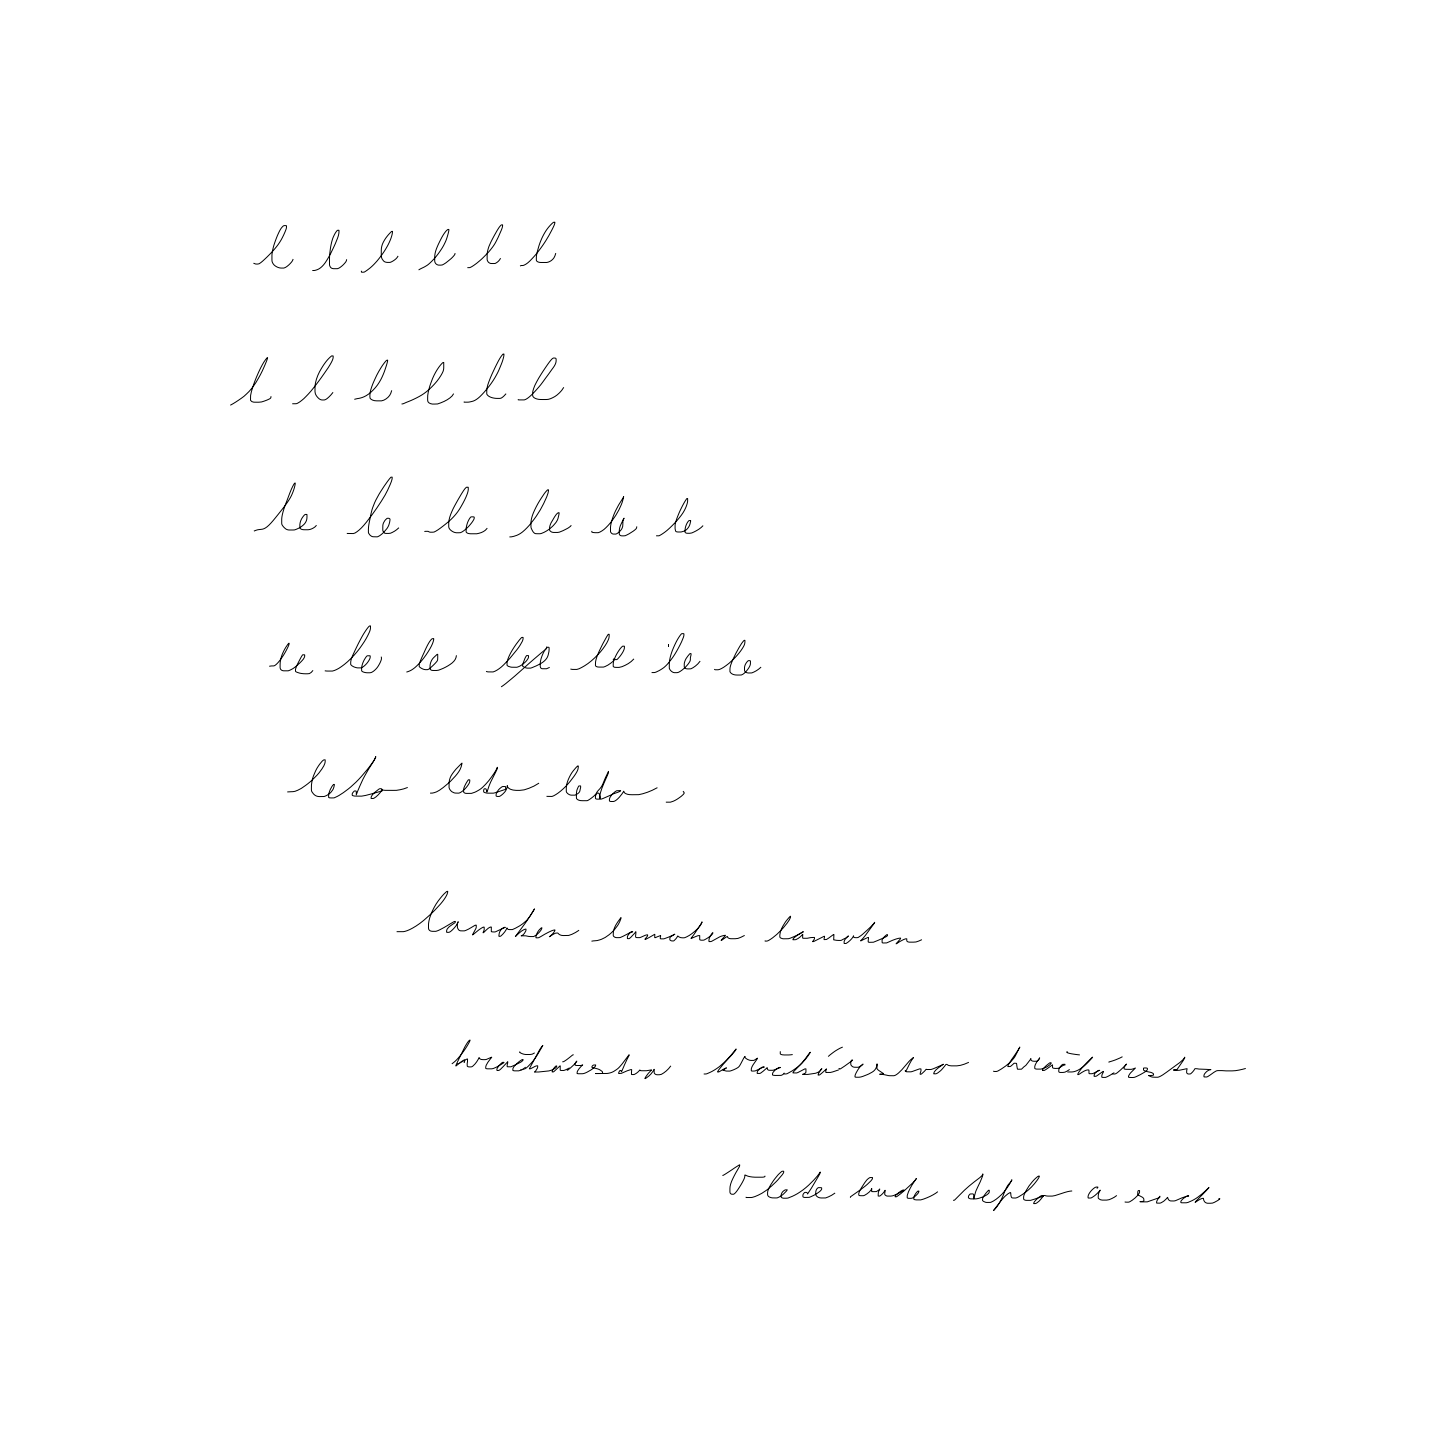 l l l l l l
l l l l l l
le le le le le le
le le le le le le le
leto leto leto
lamoken lamoken lamoken
hračkárstvo hračkárstvo hračkárstvo
V lete bude teplo a such